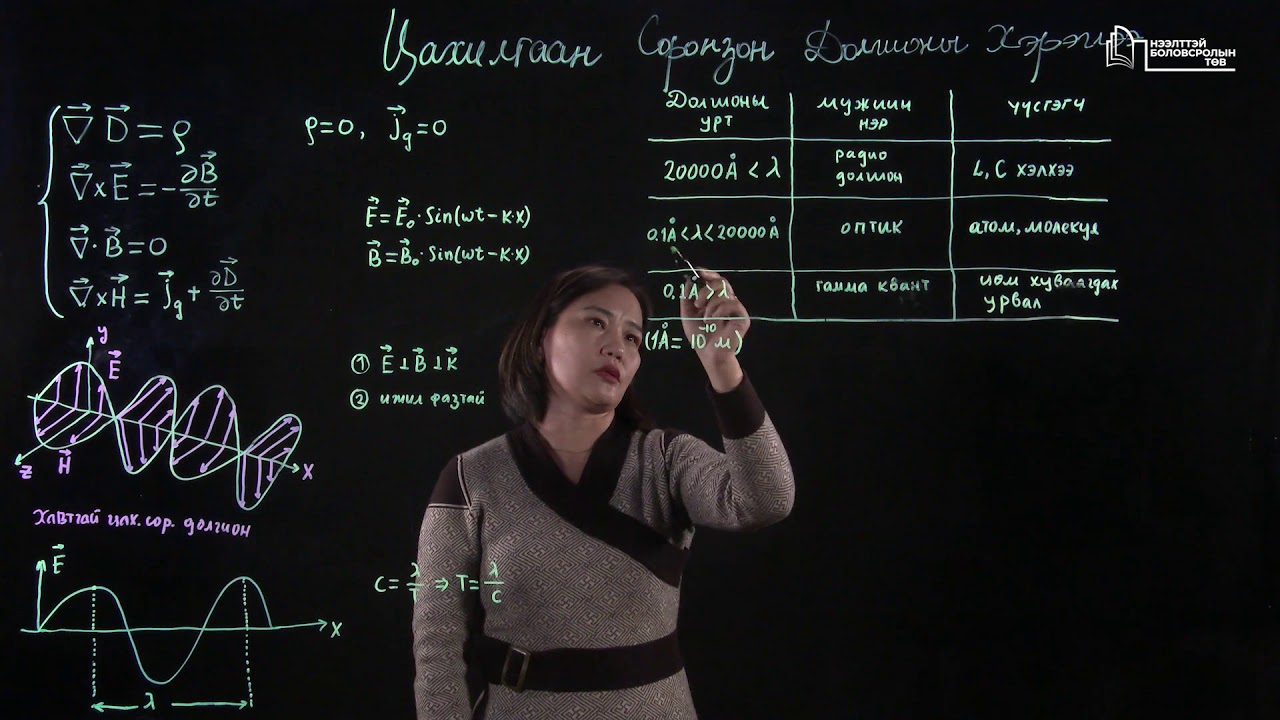 Цахилгаан Соронзон Долгионы Хэрэглээ
НЭЭЛТТЭЙ
БОЛОВСРОЛЫН
ТӨВ
∇⃗ D⃗ = ρ
∇⃗×E⃗ = -∂B⃗/∂t
∇⃗·B⃗ = 0
∇⃗×H⃗ = j⃗q + ∂D⃗/∂t
ρ=0, j⃗q=0
E⃗=E⃗₀·Sin(ωt-K·x)
B⃗=B⃗₀·Sin(ωt-K·x)
① E⃗⊥B⃗⊥K⃗
② ижил фазтай
y
E⃗
z
H⃗
x
Хавтгай цах. сор. долгион
E⃗
x
λ
C=λ/T ⇒ T=λ/C
Долгионы урт
мужийн нэр
үүсгэгч
20000Å < λ
радио долгион
L, C хэлхээ
0.1Å<λ<20000Å
оптик
атом, молекул
0.1Å > λ
гамма квант
цөм хуваагдах урвал
(1Å = 10⁻¹⁰ м)